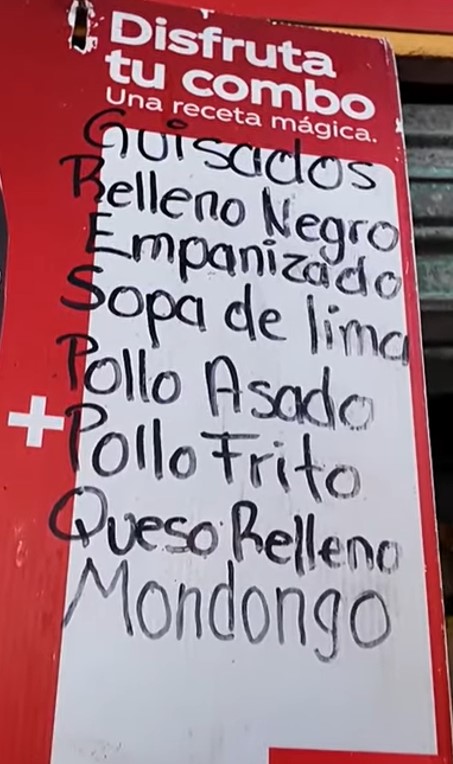 Disfruta
tu combo
Una receta mágica.
Guisados
Relleno Negro
Empanizado
Sopa de lima
Pollo Asado
+
Pollo Frito
Queso Relleno
Mondongo